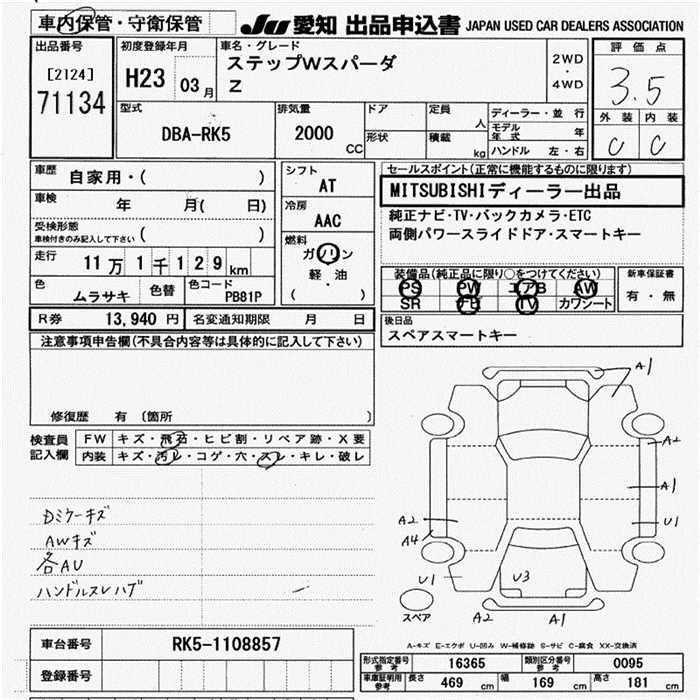 車内保管・守衛保管
JU 愛知 出品申込書 JAPAN USED CAR DEALERS ASSOCIATION
出品番号
[2124]
71134
初度登録年月
H23 03月
車名・グレード
ステップWスパーダ
Z
2WD
・
4WD
評価点
3.5
外装 内装
C C
型式
DBA-RK5
排気量
2000 CC
ドア
形状
定員 人
積載 kg
ディーラー・並行
モデル年式 年
ハンドル 左・右
車歴 自家用・( )
車検 年 月( 日)
受検形態
車検付きのみ記入して下さい ( )
走行 11万1千129km
色 ムラサキ 色替 色コード PB81P
シフト
AT
冷房
AAC
燃料
ガソリン
軽・油
( )
セールスポイント(正常に機能するものに限ります)
MITSUBISHIディーラー出品
純正ナビ・TV・バックカメラ・ETC
両側パワースライドドア・スマートキー
装備品(純正品に限り○をつけてください)
PS PW エアB AW
SR ナビ TV カワシート
新車保証書
有・無
R券 13,940円 名変通知期限 月 日
後日品
スペアスマートキー
注意事項申告欄(不具合内容等は具体的に記入して下さい)
修復歴 有 〔箇所 〕
検査員記入欄
FW キズ・飛石・ヒビ割・リペア跡・X要
内装 キズ・汚レ・コゲ・穴・スレ・キレ・破レ
Dミラーキズ
AWキズ
各AU
ハンドルスレハゲ
A1
A2
A1
U1
A2
A4
U1
U3
A2
A1
スペア
A-キズ E-エクボ U-凹み W-補修跡 S-サビ C-腐食 XX-交換済
車台番号 RK5-1108857
登録番号
形式指定番号 参考 16365 類別区分番号 参考 0095
車庫証明用 参考 長さ 469 cm 幅 169 cm 高さ 181 cm